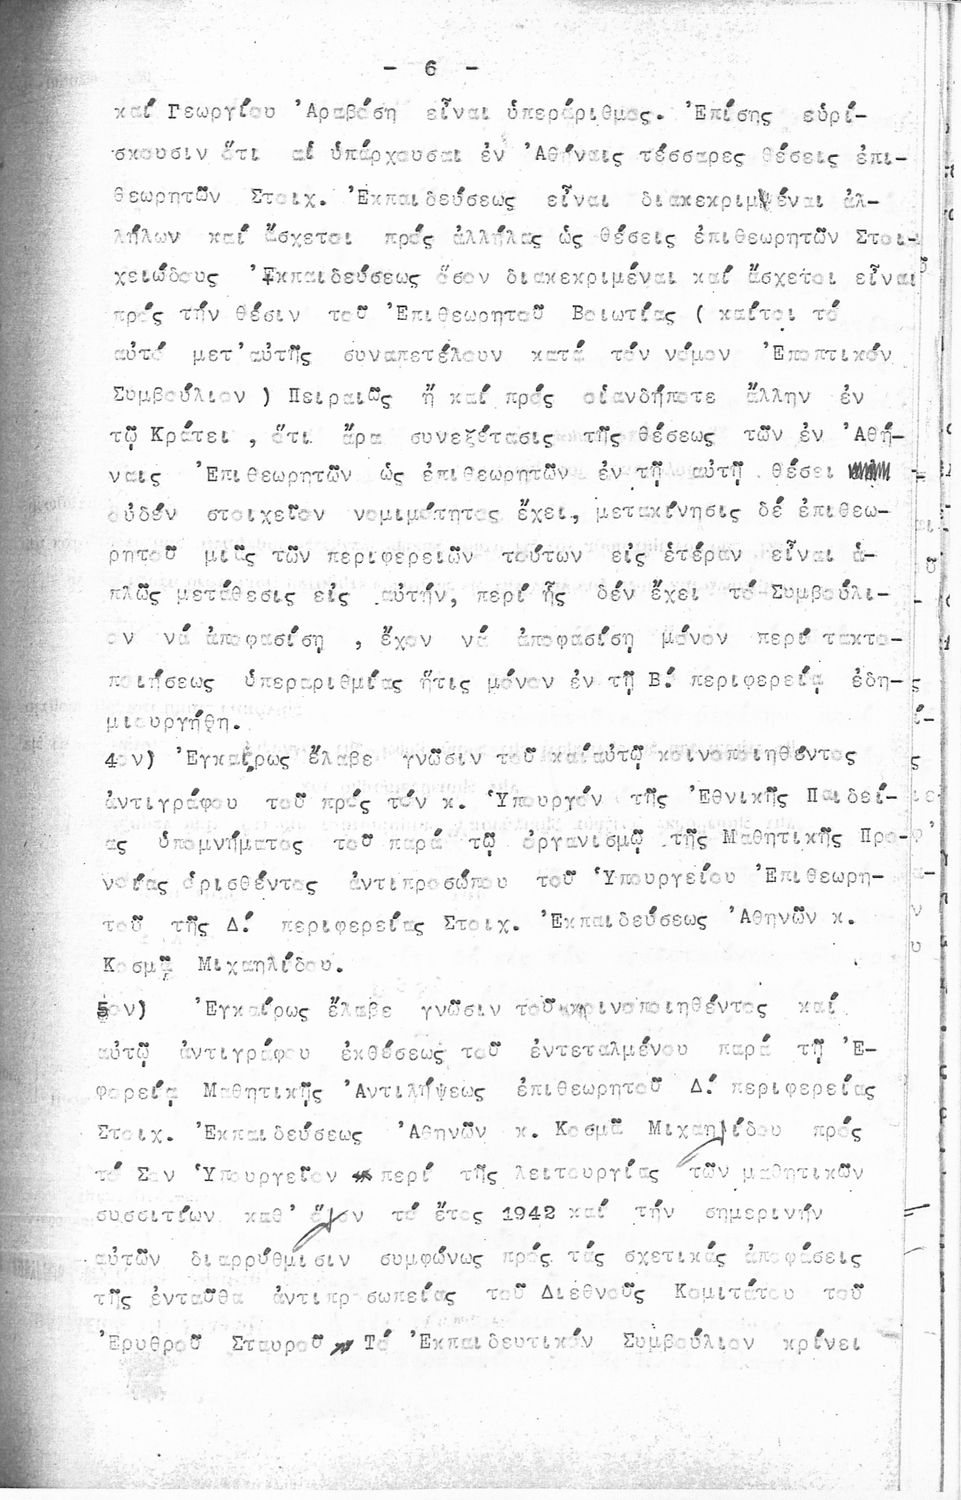 - 6 -
καί Γεωργίου Ἀραβόση εἶναι ὑπεράριθμος. Ἐπίσης εὑρί-
σκουσιν ὅτι αἱ ὑπάρχουσαι ἐν Ἀθήναις τέσσαρες θέσεις ἐπι-
θεωρητῶν Στοιχ. Ἐκπαιδεύσεως εἶναι διακεκριμέναι ἀλ-
λήλων καί ἄσχετοι πρός ἀλλήλας ὡς θέσεις ἐπιθεωρητῶν Στοι-
χειώδους Ἐκπαιδεύσεως ὅσον διακεκριμέναι καί ἄσχετοι εἶναι
πρός τήν θέσιν τοῦ Ἐπιθεωρητοῦ Βοιωτίας ( καίτοι τό
αὐτό μετ'αὐτῆς συναπετέλουν κατά τόν νόμον Ἐποπτικόν
Συμβούλιον ) Πειραιῶς ἤ καί πρός οἱανδήποτε ἄλλην ἐν
τῷ Κράτει , ὅτι ἄρα συνεξέτασις τῆς θέσεως τῶν ἐν Ἀθή-
ναις Ἐπιθεωρητῶν ὡς ἐπιθεωρητῶν ἐν τῇ αὐτῇ θέσει
οὐδέν στοιχεῖον νομιμότητος ἔχει, μετακίνησις δέ ἐπιθεω-
ρητοῦ μιᾶς τῶν περιφερειῶν τούτων εἰς ἑτέραν εἶναι ἁ-
πλῶς μετάθεσις εἰς αὐτήν, περί ἧς δέν ἔχει τό Συμβούλι-
ον νά ἀποφασίσῃ , ἔχον νά ἀποφασίσῃ μόνον περί τακτο-
ποιήσεως ὑπεραριθμίας ἥτις μόνον ἐν τῇ Β.' περιφερείᾳ ἐδη-
μιουργήθη.
4ον) Ἐγκαίρως ἔλαβε γνῶσιν τοῦ καί αὐτῷ κοινοποιηθέντος
ἀντιγράφου τοῦ πρός τόν κ. Ὑπουργόν τῆς Ἐθνικῆς Παιδεί-
ας ὑπομνήματος τοῦ παρά τῷ ὀργανισμῷ τῆς Μαθητικῆς Προ-
νοίας ὁρισθέντος ἀντιπροσώπου τοῦ Ὑπουργείου Ἐπιθεωρη-
τοῦ τῆς Δ.' περιφερείας Στοιχ. Ἐκπαιδεύσεως Ἀθηνῶν κ.
Κοσμᾶ Μιχαηλίδου.
5ον) Ἐγκαίρως ἔλαβε γνῶσιν τοῦ κοινοποιηθέντος καί
αὐτῷ ἀντιγράφου ἐκθέσεως τοῦ ἐντεταλμένου παρά τῇ Ἐ-
φορείᾳ Μαθητικῆς Ἀντιλήψεως ἐπιθεωρητοῦ Δ.' περιφερείας
Στοιχ. Ἐκπαιδεύσεως Ἀθηνῶν κ. Κοσμᾶ Μιχαηλίδου πρός
τό Σον Ὑπουργεῖον περί τῆς λειτουργίας τῶν μαθητικῶν
συσσιτίων καθ' ὅλον τό ἔτος 1942 καί τήν σημερινήν
αὐτῶν διαρρύθμισιν συμφώνως πρός τάς σχετικάς ἀποφάσεις
τῆς ἐνταῦθα ἀντιπροσωπείας τοῦ Διεθνοῦς Κομιτάτου τοῦ
Ἐρυθροῦ Σταυροῦ Τό Ἐκπαιδευτικόν Συμβούλιον κρίνει